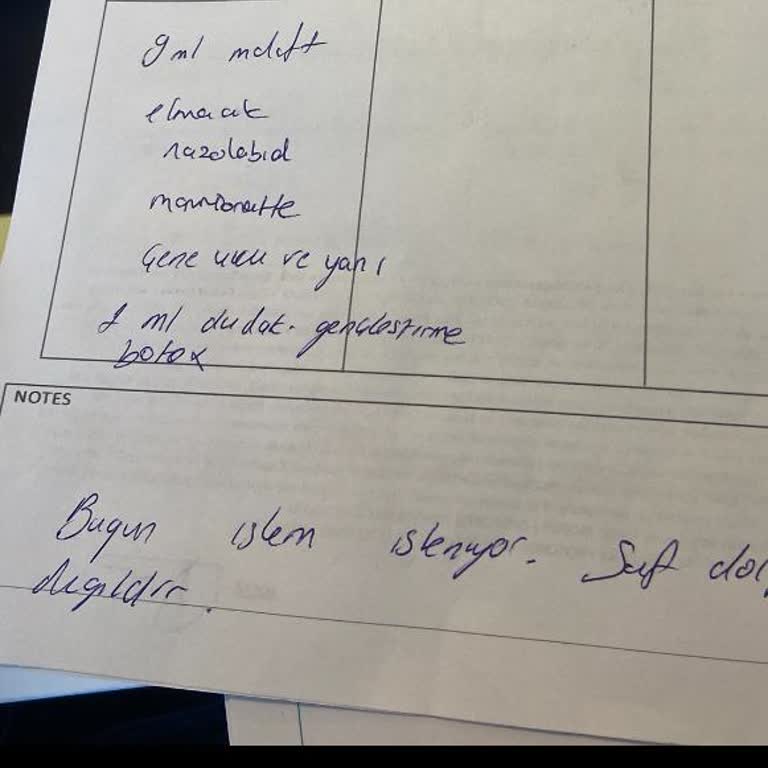 9 ml mdlft
elmacık
nazolabial
marrionatte
Çene ucu ve yanı
1 ml dudak. gençleştirme
botox
NOTES
Bugün işlem isteniyor. Saft
değildir.